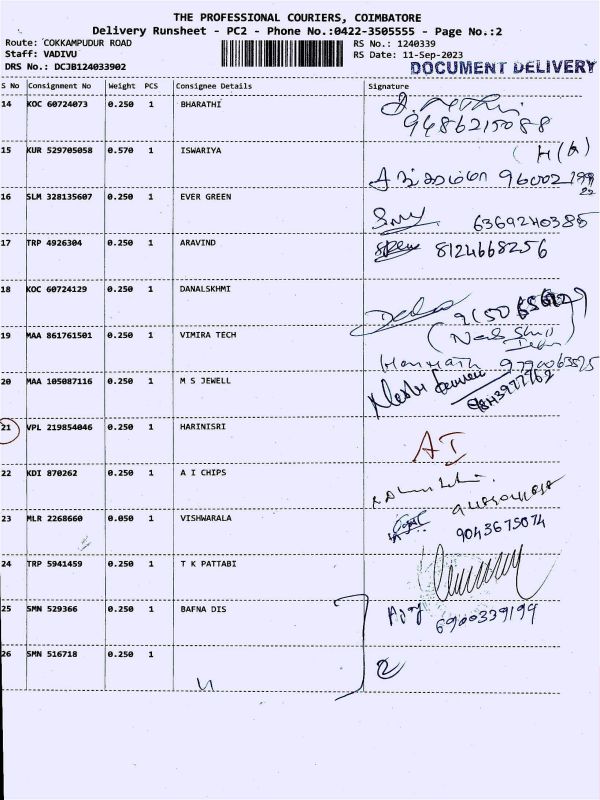 THE PROFESSIONAL COURIERS, COIMBATORE
Delivery Runsheet - PC2 - Phone No.:0422-3505555 - Page No.:2
Route: COKKAMPUDUR ROAD RS No.: 1240339
Staff: VADIVU RS Date: 11-Sep-2023
DRS No.: DCJB124033902 DOCUMENT DELIVERY
S No Consignment No Weight PCS Consignee Details Signature
14 KOC 60724073 0.250 1 BHARATHI
9486215088
15 KUR 529705058 0.570 1 ISWARIYA
16 SLM 328135607 0.250 1 EVER GREEN
6369240385
17 TRP 4926304 0.250 1 ARAVIND 8124668256
18 KOC 60724129 0.250 1 DANALSKHMI
19 MAA 861761501 0.250 1 VIMIRA TECH
9790063595
20 MAA 105087116 0.250 1 M S JEWELL
21 VPL 219854046 0.250 1 HARINISRI
AI
22 KDI 870262 0.250 1 A I CHIPS
23 MLR 2268660 0.050 1 VISHWARALA 9043675074
24 TRP 5941459 0.250 1 T K PATTABI
25 SMN 529366 0.250 1 BAFNA DIS
6900339194
26 SMN 516718 0.250 1